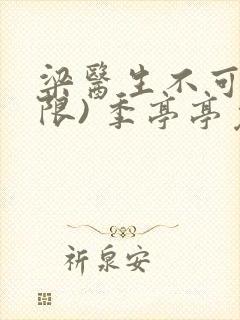 梁醫生不可
限）季亭亭
祈泉安